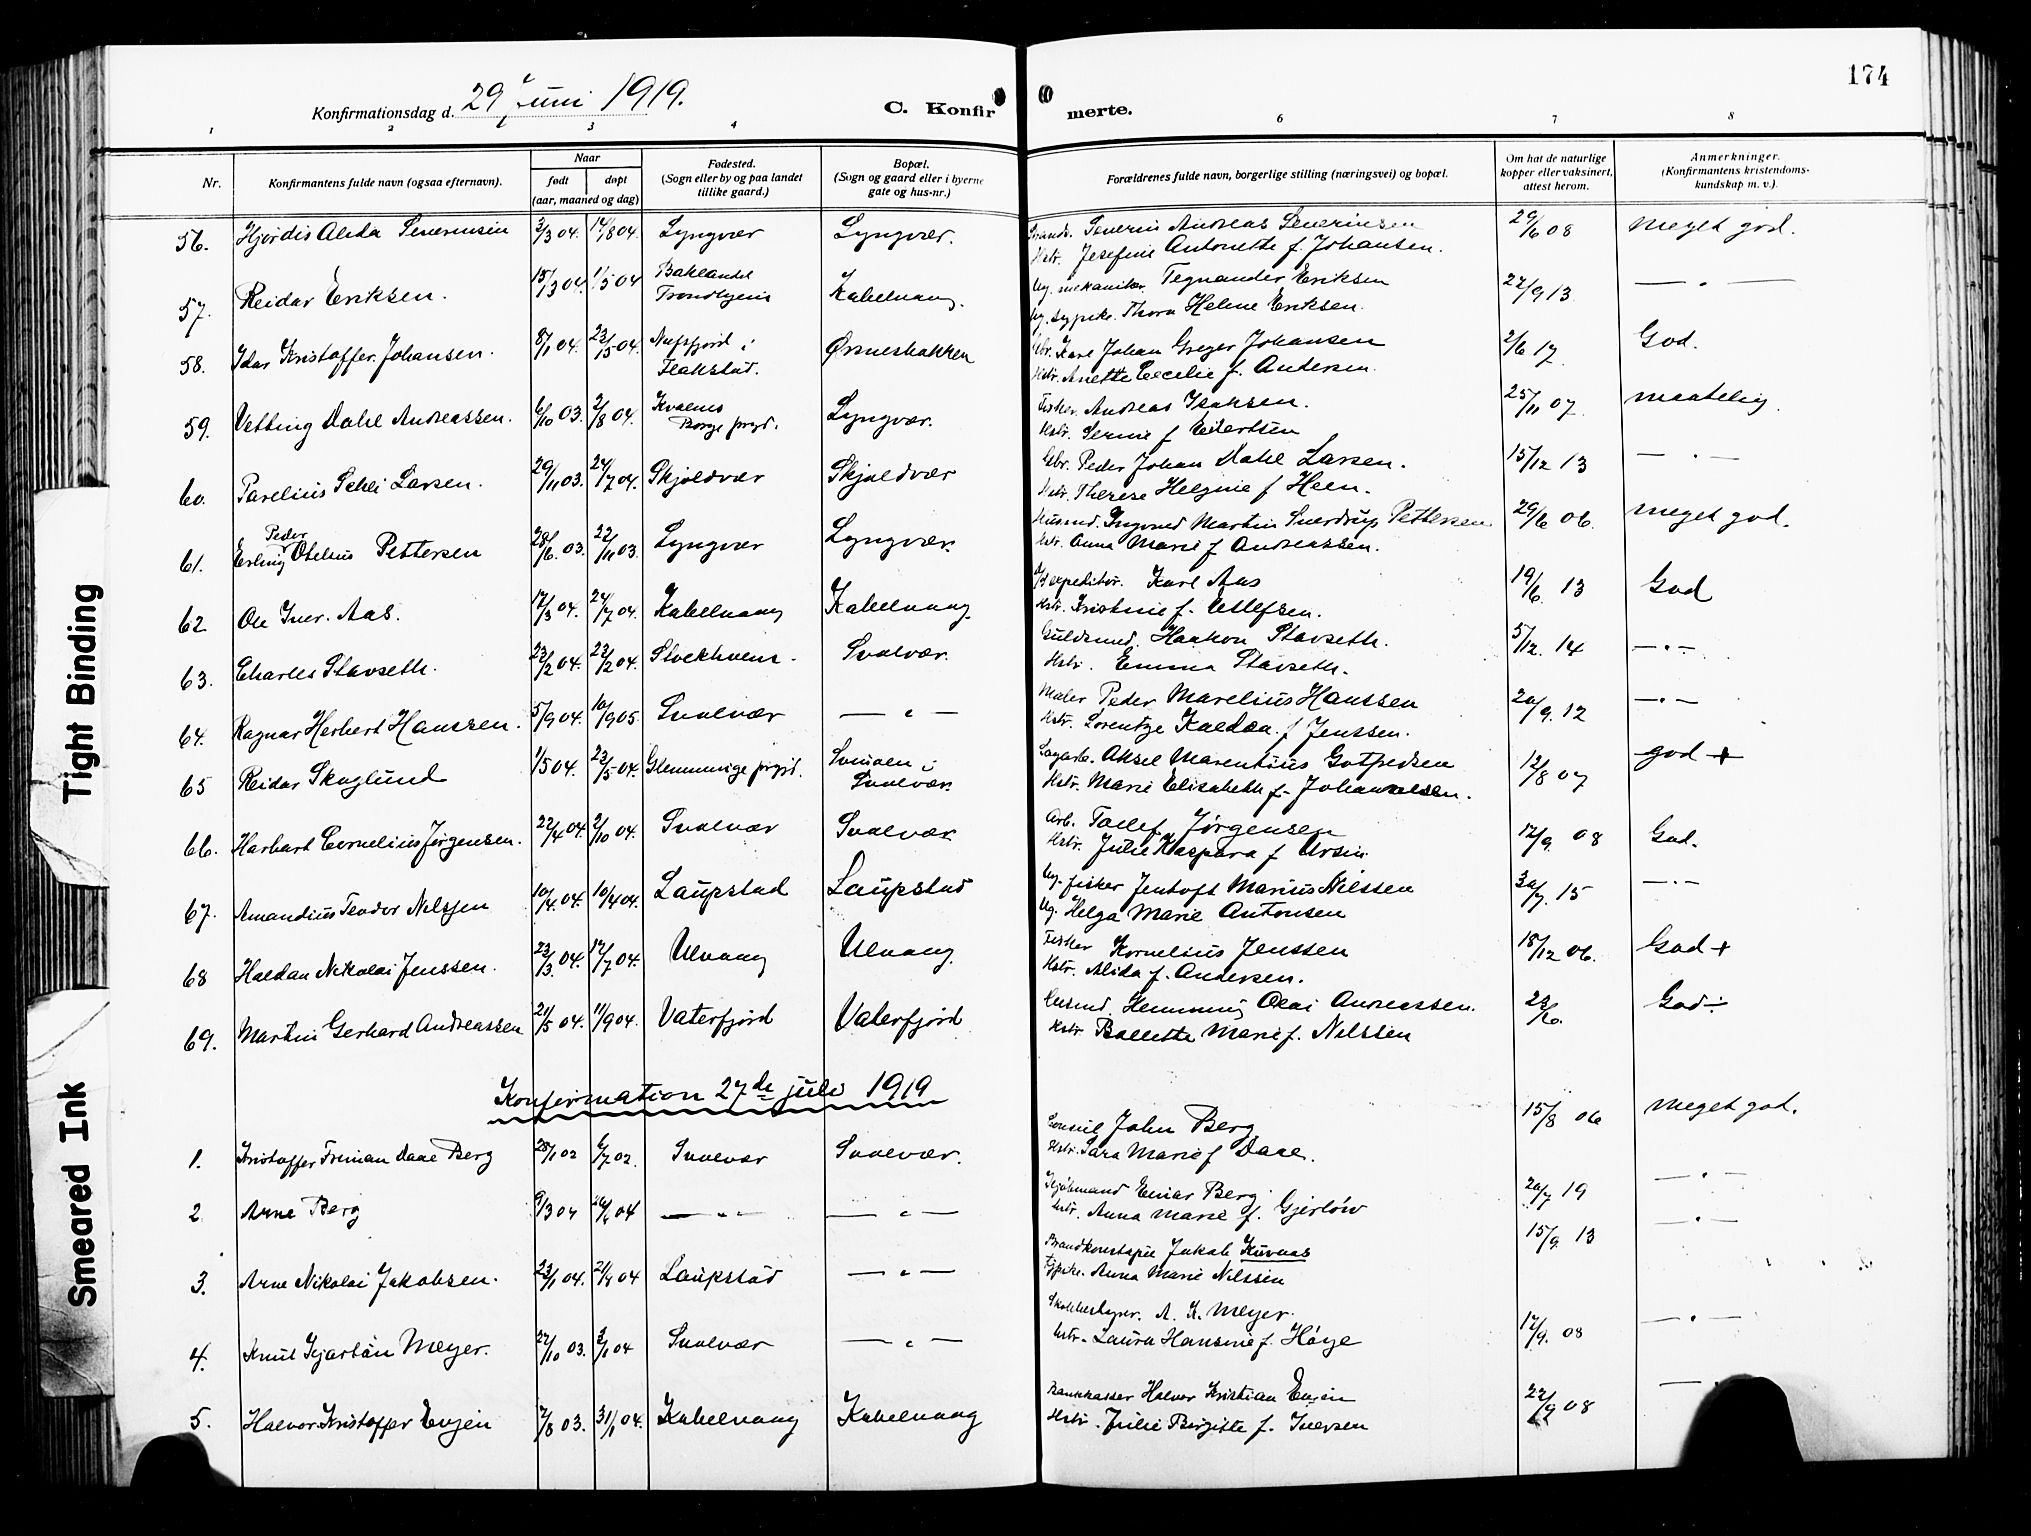 174
Konfirmationsdag d. 29 Juni 1919.
C. Konfir merte.
1 2 3 4 6 7 8
Nr.
Konfirmantens fulde navn (ogsaa efternavn).
Naar
født døpt
(aar, maaned og dag)
Fødested.
(Sogn eller by og paa landet
tillike gaard.)
Bopæl.
(Sogn og gaard eller i byerne
gate og hus-nr.)
Forældrenes fulde navn, borgerlige stilling (næringsvei) og bopæl.
Om hat de naturlige
kopper eller vaksinert,
attest herom.
Anmerkninger.
(Konfirmantens kristendoms-
kundskap m. v.).
56. Hjørdis Alida Severinsen 3/3 04. 14/8 04. Lyngvær Lyngvær. Severin Andreas Severinsen 29/6 08 Meget god.
Hstr. Josefine Antonette f. Johansen.
57. Reidar Eriksen. 15/3 04. 1/5 04 Baklandet Trondhjem Kabelvaag. Ug. mekaniker Tegnander Eriksen 22/9 13 — " —
Ug. sypike. Thora Helene Eriksen.
58. Idar Kristoffer Johansen. 8/1 04. 23/5 04. Nufsfjord i Flakstad. Ørsnesbakken Gbr. Karl Johan Greger Johansen 2/6 17 God.
Hstr. Anette Cecilie f. Andersen.
59. Vebbing Dahl Andreassen. 6/10 03. 2/8 04. Kvalnes Borge prgd. Lyngvær. Fisker. Andreas Isaksen. 25/11 07. maatelig.
Hstr. f Edvertsen
60. Parelius Schei Larsen. 29/11 03. 24/7 04. Skjoldvær Skjoldvær Gbr. Peder Johan Dahl Larsen. 15/12 13 — " —
Hstr. Therese Helgine f Heen.
61. Erling Peder Otelius Pettersen 28/6. 03. 22/11 03. Lyngvær Lyngvær. Husmd. Ingvard Martin Sverdrup Pettersen 29/6 06. Meget god.
Hstr. Anna Marie f Andreassen.
62 Ole Iver. Aas. 17/3 04. 24/7 04. Kabelvaag Kabelvaag. expeditør. Karl Aas 19/6. 13 God
Hstr. Kristine f. Detlefsen.
63. Charles Stavseth. 23/2 04. 23/2 04. Stockholm. Svolvær. Guldsmed. Haakon Stavseth. 5/12. 14 — " —
Hstr. Emma Stavseth.
64. Ragnar Herbert Hanssen. 5/9 04. 10/9 05. Svolvær — " — Maler Peder Marelius Hanssen 20/9. 12 — " —
Hstr. Lorentze Kaldaa f Jenssen.
65 Reidar Skoglund 1/5 04. 23/5 04. Glemminge prgd. Svinøen i Svolvær. Lagerb. Aksel Marentius Gotfredsen 12/8 07 god +
Hstr. Marie Elisabeth f. Johannesen.
66. Harbart Cornelius Jørgensen. 22/4 04. 2/10 04. Svolvær Svolvær Arb. Tollef Jørgensen 12/9. 08 God.
Hstr. Julie Kaspara f Ursin.
67. Amandius Teodor Nilsen 10/4. 04. 10/4 04 Laupstad Laupstad Ug. fisker Jentoft Marius Nilssen 30/7. 15 — " —
Ug. Helga Marie Antonsen
68 Haldan Nikolai Jenssen. 23/3. 04. 17/7 04. Ulvaag Ulvaag. Fisker Kornelius Jenssen 18/12 06. God +
Hstr. Alida f. Andersen.
69. Martin Gerhard Andreassen 21/5 04. 11/9 04. Vaterfjord Vaterfjord Husmd. Hemming Olai Andreassen. 28/6. God ÷
Hstr. Bollette Marie f. Nilssen
Konfirmation 27de juli 1919
1. Kristoffer Friman Daae Berg 28/1 02 6/7 02. Svolvær Svolvær. Consul John Berg 15/8 06 Meget god.
Hstr. Sara Marie f Daae.
2 Arne Berg 9/3 04 04 — " — — " — Kjøbmand Einar Berg 20/7 19 — " —
Hstr. Anna Marie f. Gjerløw
3. Arne Nikolai Jakobsen. 23/1 04. 21/4 04 Laupstad — " — Brandkonstapel Jakob Kurnas 15/9. 13 — " —
Anna Marie Nilssen
4. Knut Kjartan Meyer. 27/10 03. 3/1 04 Svolvær — " — Skolebestyrer. A. K. Meyer. 17/9. 08 — " —
Hstr. Laura Hansine f. Høye
5. Halvor Kristoffer Enzen 7/8 03. 31/1 04. Kabelvaag Kabelvaag Bankkasser Halvor Kristian 22/9 08 — " —
Hstr. Julie Bergitte f. Iversen
Tight Binding
Smeared Ink